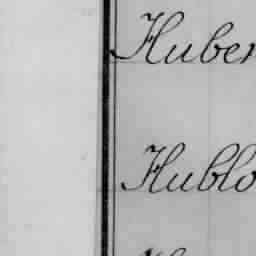 Huber
Hublo